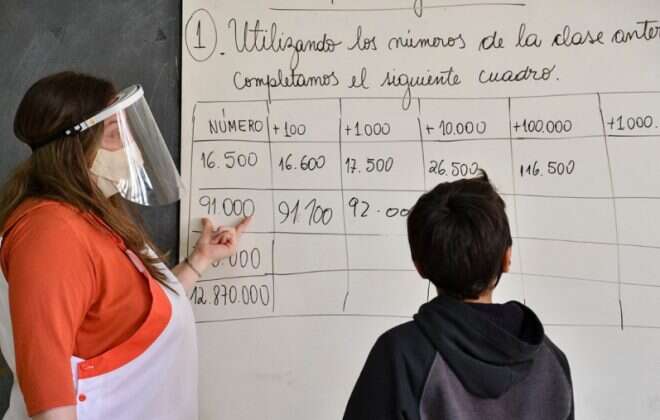 1. Utilizando los números de la clase anter
completamos el siguiente cuadro.
NÚMERO +100 +1000 +10.000 +100.000 +1000.
16.500 16.600 17.500 26.500 116.500
91.000 91.100 92.00
.000
12.870.000